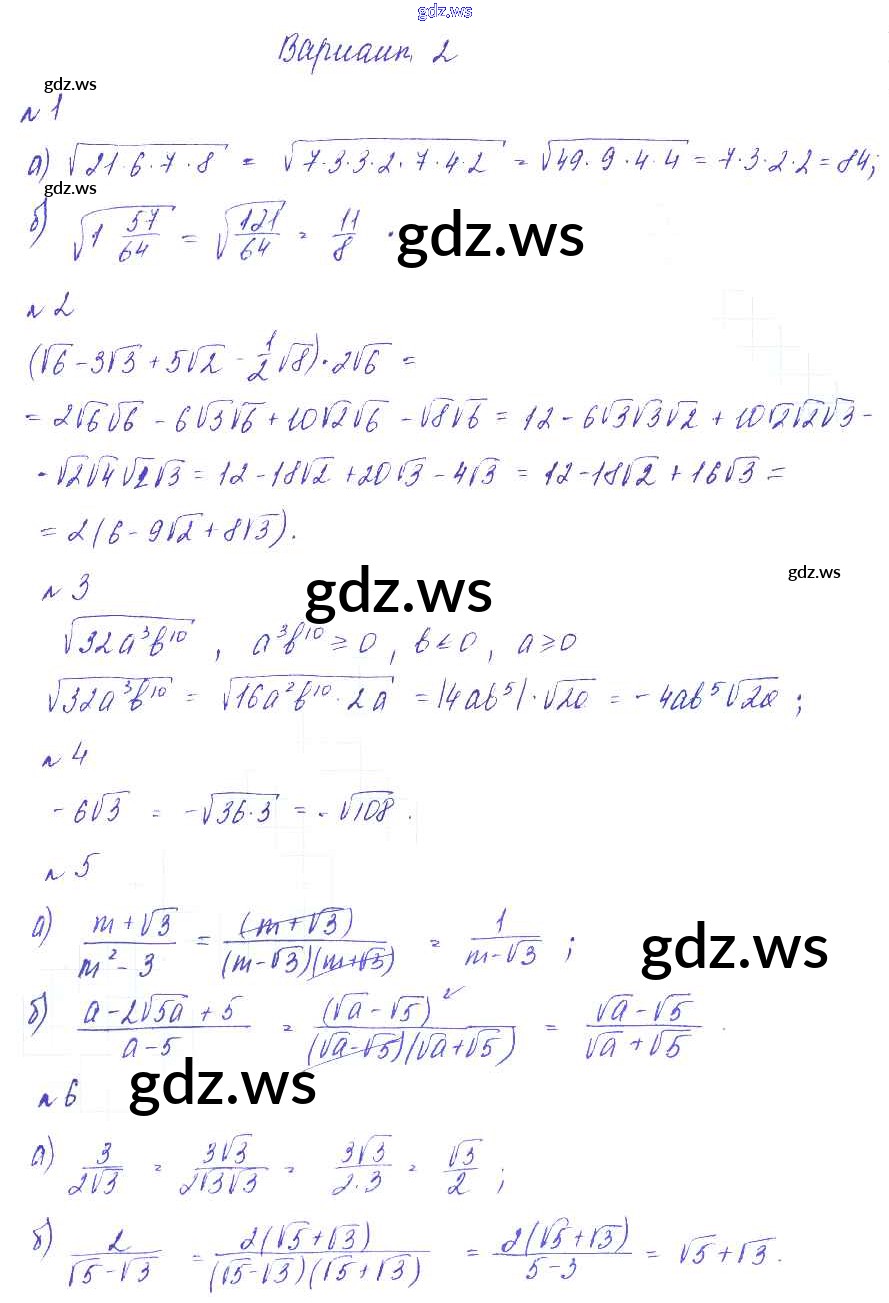 gdz.ws
Вариант 2
gdz.ws
№ 1
а) √(21·6·7·8) = √(7·3·3·2·7·4·2) = √(49·9·4·4) = 7·3·2·2 = 84;
gdz.ws
б) √(1 57/64) = √(121/64) = 11/8 .
gdz.ws
№ 2
(√6 - 3√3 + 5√2 - 1/2 √8)·2√6 =
= 2√6√6 - 6√3√6 + 10√2√6 - √8√6 = 12 - 6√3√3√2 + 10√2√2√3 -
- √2√4√2√3 = 12 - 18√2 + 20√3 - 4√3 = 12 - 18√2 + 16√3 =
= 2(6 - 9√2 + 8√3).
№ 3
gdz.ws
gdz.ws
√(32a³b¹⁰) , a³b¹⁰ ≥ 0 , b < 0 , a ≥ 0
√(32a³b¹⁰) = √(16a²b¹⁰·2a) = |4ab⁵|·√(2a) = -4ab⁵√(2a) ;
№ 4
-6√3 = -√(36·3) = -√108 .
№ 5
а) (m+√3)/(m²-3) = (m+√3)/((m-√3)(m+√3)) = 1/(m-√3) ;
gdz.ws
б) (a-2√(5a)+5)/(a-5) = (√a-√5)²/((√a-√5)(√a+√5)) = (√a-√5)/(√a+√5) .
gdz.ws
№ 6
а) 3/(2√3) = 3√3/(2√3√3) = 3√3/(2·3) = √3/2 ;
б) 2/(√5-√3) = 2(√5+√3)/((√5-√3)(√5+√3)) = 2(√5+√3)/(5-3) = √5+√3.